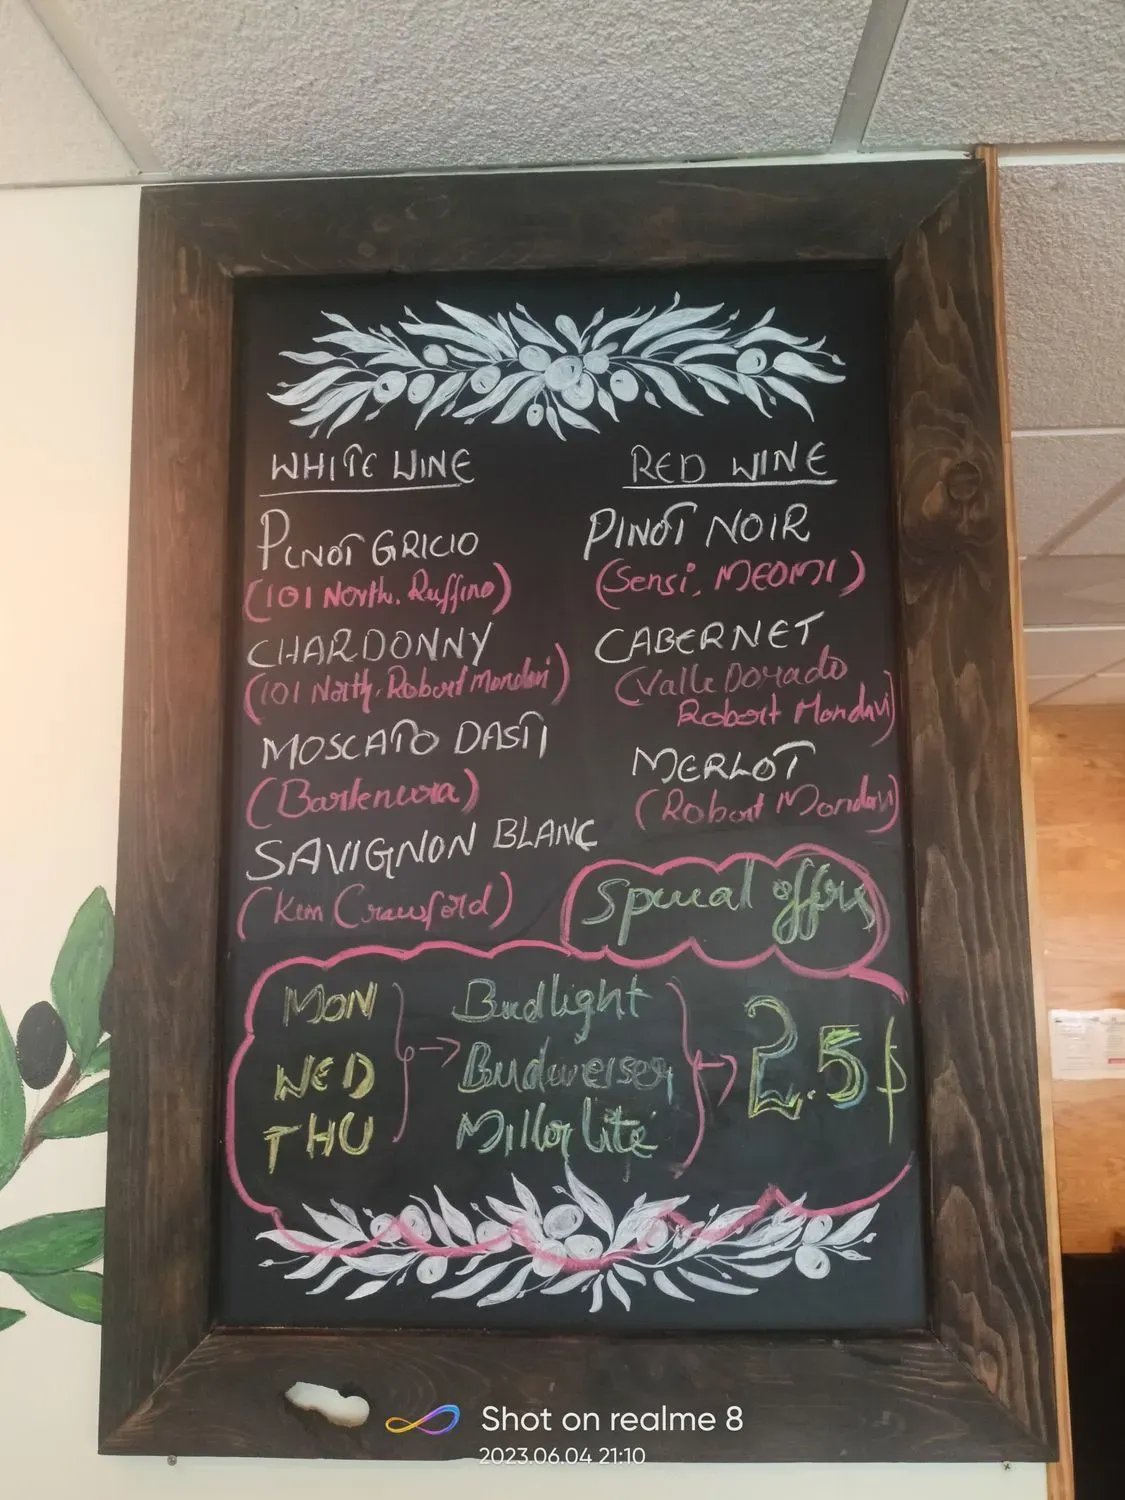 WHITE WINE
PINOT GRICIO
(101 North, Ruffino)
CHARDONNY
(101 North, Robert Mondavi)
MOSCATO DASTI
(Bartenura)
SAVIGNON BLANC
(Kim Crawford)
RED WINE
PINOT NOIR
(Sensi, MEOMI)
CABERNET
(Valle Dorado
Robert Mondavi)
MERLOT
(Robert Mondavi)
Special offers
MON
WED
THU
Budlight
Budweiser
Miller lite
2.5$
Shot on realme 8
2023.06.04 21:10